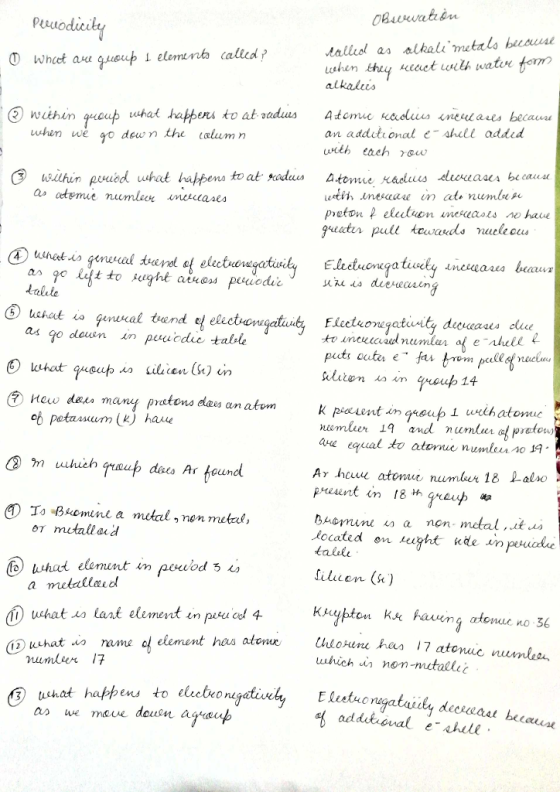 Periodicity
Observation
① What are group 1 elements called?
called as alkali metals because
when they react with water form
alkalies
② Within group what happens to at radius
when we go down the column
Atomic radius increases because
an additional e⁻ shell added
with each row
③ Within period what happens to at radius
as atomic number increases
Atomic radius decreases because
with increase in ato number
proton & electron increases so have
greater pull towards nucleous
④ What is general trend of electronegativity
as go left to right across periodic
table
Electronegativity increases because
size is decreasing
⑤ What is general trend of electronegativity
as go down in periodic table
Electronegativity decreases due
to increased number of e⁻ shell &
puts outer e⁻ far from pull of nucleus
⑥ What group is silicon (Si) in
Silicon is in group 14
⑦ How does many protons does an atom
of potassium (K) have
K present in group 1 with atomic
number 19 and number of protons
are equal to atomic number so 19.
⑧ In which group does Ar found
Ar have atomic number 18 & also
present in 18th group
⑨ Is Bromine a metal, non metal,
or metalloid
Bromine is a non-metal, it is
located on right side in periodic
table.
⑩ What element in period 3 is
a metalloid
Silicon (Si)
⑪ What is last element in period 4
Krypton Kr having atomic no 36
⑫ What is name of element has atomic
number 17
Chlorine has 17 atomic number
which is non-metallic.
⑬ What happens to electronegativity
as we move down a group
Electronegativity decrease because
of additional e⁻ shell.